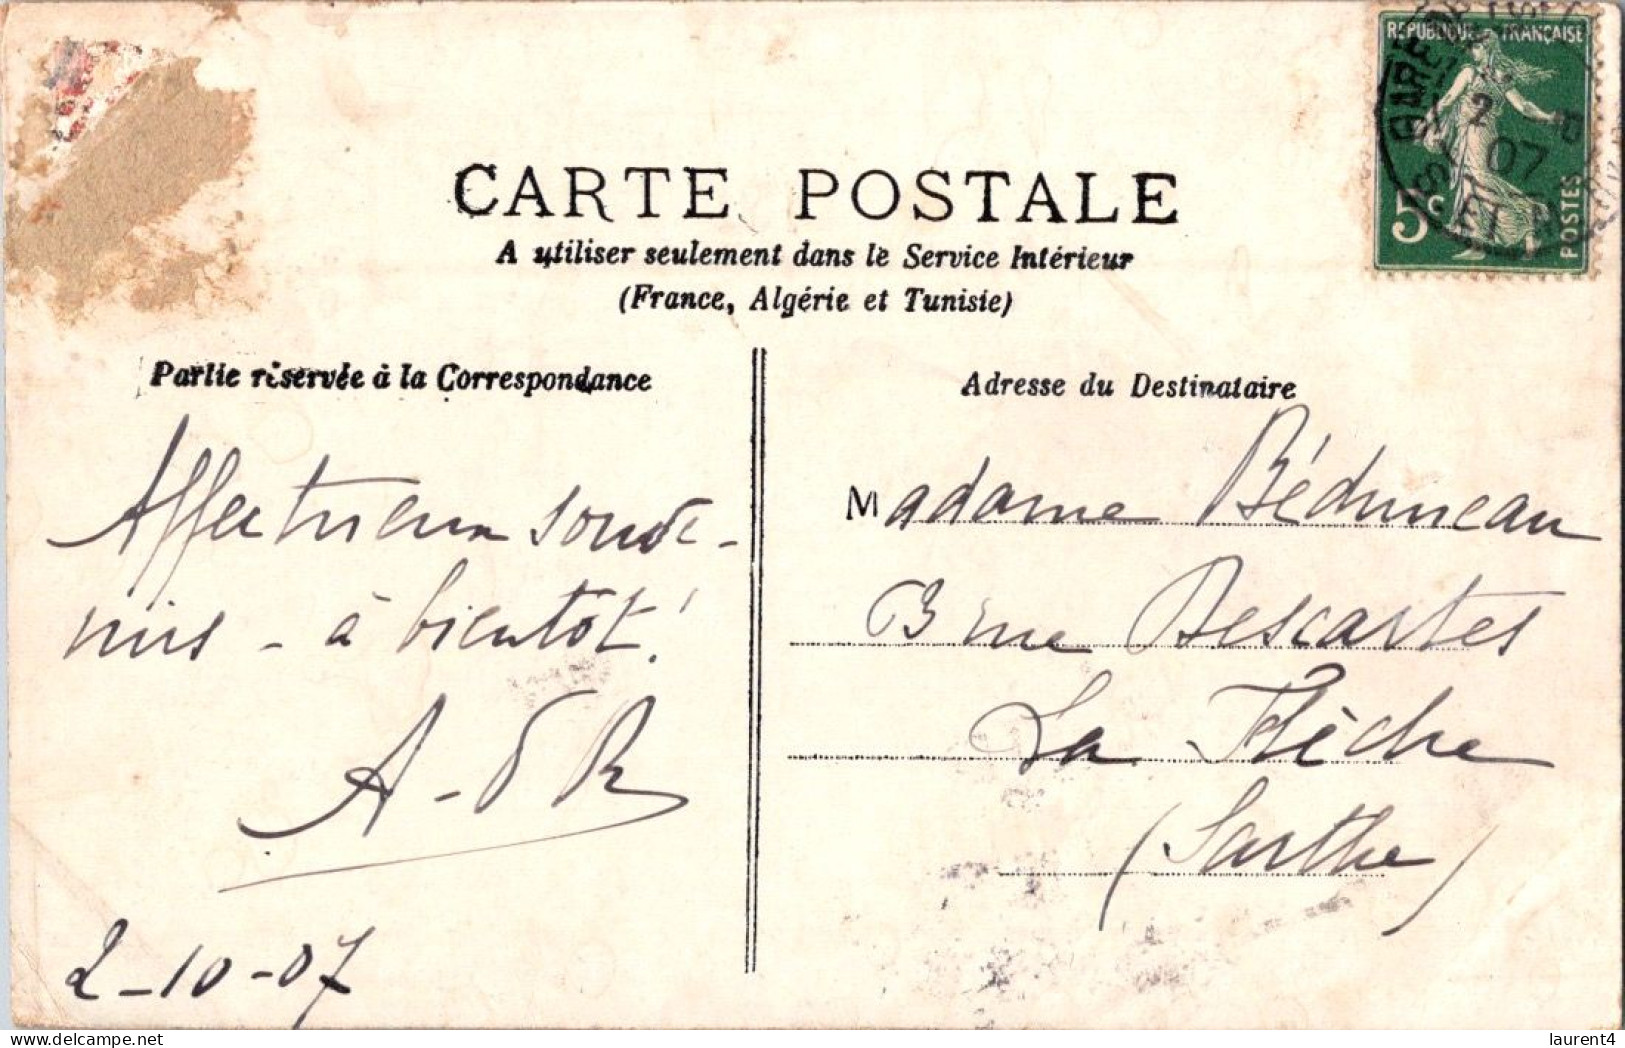 REPUBLIQUE FRANÇAISE
GARE
2
07
5c
POSTES
ET
CARTE POSTALE
A utiliser seulement dans le Service Intérieur
(France, Algérie et Tunisie)
Partie réservée à la Correspondance
Affectueux souve-
nirs - à bientôt!
A - d R
2-10-07
Adresse du Destinataire
Madame Béduneau
3 rue Descartes
La Flèche
(Sarthe)
laurent4